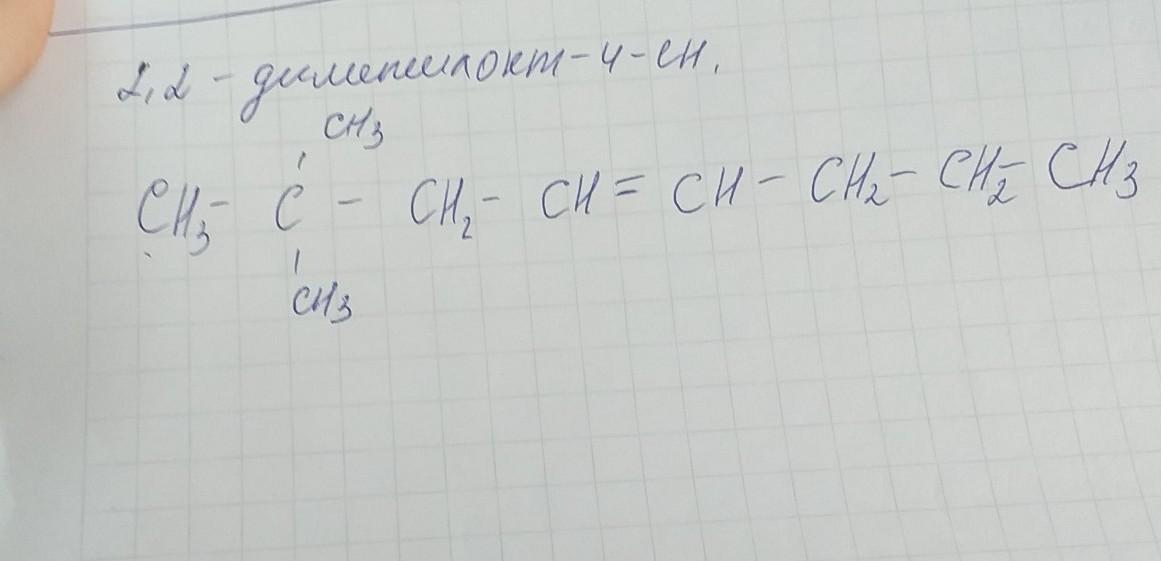 2,2 - диметилокт-4-ен.
CH3
CH3 - C - CH2 - CH = CH - CH2 - CH2 - CH3
CH3